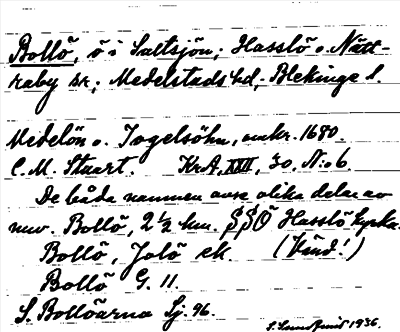 Bollö, ö i Saltsjön; Hasslö o. Nätt-
raby sk; Medelstads hd; Blekinge l.
Medelön o. Togelsöhn, omkr. 1680.
C. M. Stuart. KrA, XXII, 30, N:o 6.
De båda namnen avse olika delar av
nuv. Bollö, 2 ½ km. SSÖ Hasslö kyrka.
Bollö, Jolö ek. (Vänd!)
Bollö G. 11.
S. Bollöarna Sj. 96.
1936.